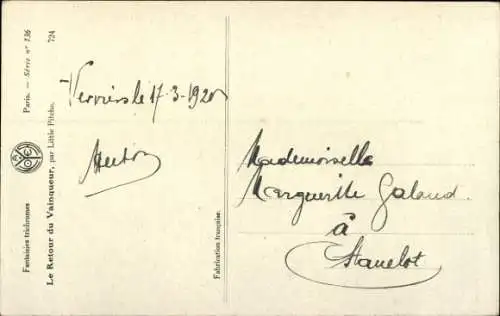 Paris. — Série n° 136
724
Fantaisies trichromes
Le Retour du Vainqueur, par Little Pitche.
Fabrication française.
Verviers le 17-3-1920
Mademoiselle
Marguerite Galand
à
Stavelot